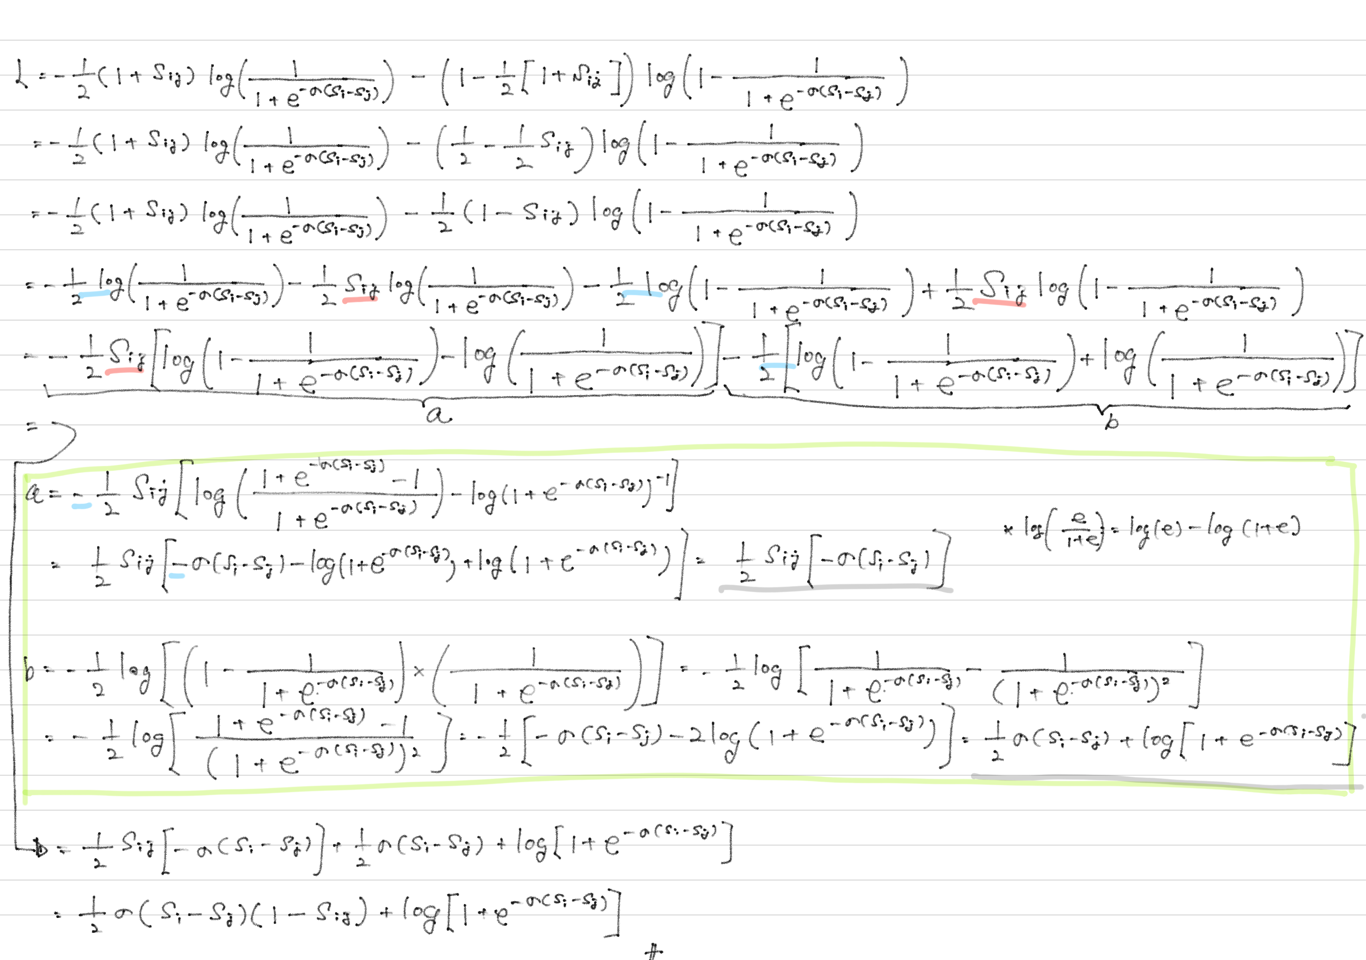 L = -1/2 (1 + Sij) log(1/(1 + e^{-σ(si-sj)})) - (1 - 1/2 [1 + Sij]) log(1 - 1/(1 + e^{-σ(si-sj)}))
= -1/2 (1 + Sij) log(1/(1 + e^{-σ(si-sj)})) - (1/2 - 1/2 Sij) log(1 - 1/(1 + e^{-σ(si-sj)}))
= -1/2 (1 + Sij) log(1/(1 + e^{-σ(si-sj)})) - 1/2 (1 - Sij) log(1 - 1/(1 + e^{-σ(si-sj)}))
= -1/2 log(1/(1 + e^{-σ(si-sj)})) - 1/2 Sij log(1/(1 + e^{-σ(si-sj)})) - 1/2 log(1 - 1/(1 + e^{-σ(si-sj)})) + 1/2 Sij log(1 - 1/(1 + e^{-σ(si-sj)}))
= -1/2 Sij [log(1 - 1/(1 + e^{-σ(si-sj)})) - log(1/(1 + e^{-σ(si-sj)}))] - 1/2 [log(1 - 1/(1 + e^{-σ(si-sj)})) + log(1/(1 + e^{-σ(si-sj)}))]
a b
=
a = -1/2 Sij [log((1 + e^{-σ(si-sj)} - 1)/(1 + e^{-σ(si-sj)})) - log(1 + e^{-σ(si-sj)})^{-1}]
* log(e/(1+e)) = log(e) - log(1+e)
= 1/2 Sij [-σ(si-sj) - log(1 + e^{-σ(si-sj)}) + log(1 + e^{-σ(si-sj)})] = 1/2 Sij [-σ(si-sj)]
b = -1/2 log[(1 - 1/(1 + e^{-σ(si-sj)})) × (1/(1 + e^{-σ(si-sj)}))] = -1/2 log[1/(1 + e^{-σ(si-sj)}) - 1/(1 + e^{-σ(si-sj)})^2]
= -1/2 log[(1 + e^{-σ(si-sj)} - 1)/(1 + e^{-σ(si-sj)})^2] = -1/2 [-σ(si-sj) - 2log(1 + e^{-σ(si-sj)})] = 1/2 σ(si-sj) + log[1 + e^{-σ(si-sj)}]
= 1/2 Sij [-σ(si-sj)] + 1/2 σ(si-sj) + log[1 + e^{-σ(si-sj)}]
= 1/2 σ(si-sj)(1 - Sij) + log[1 + e^{-σ(si-sj)}]
#